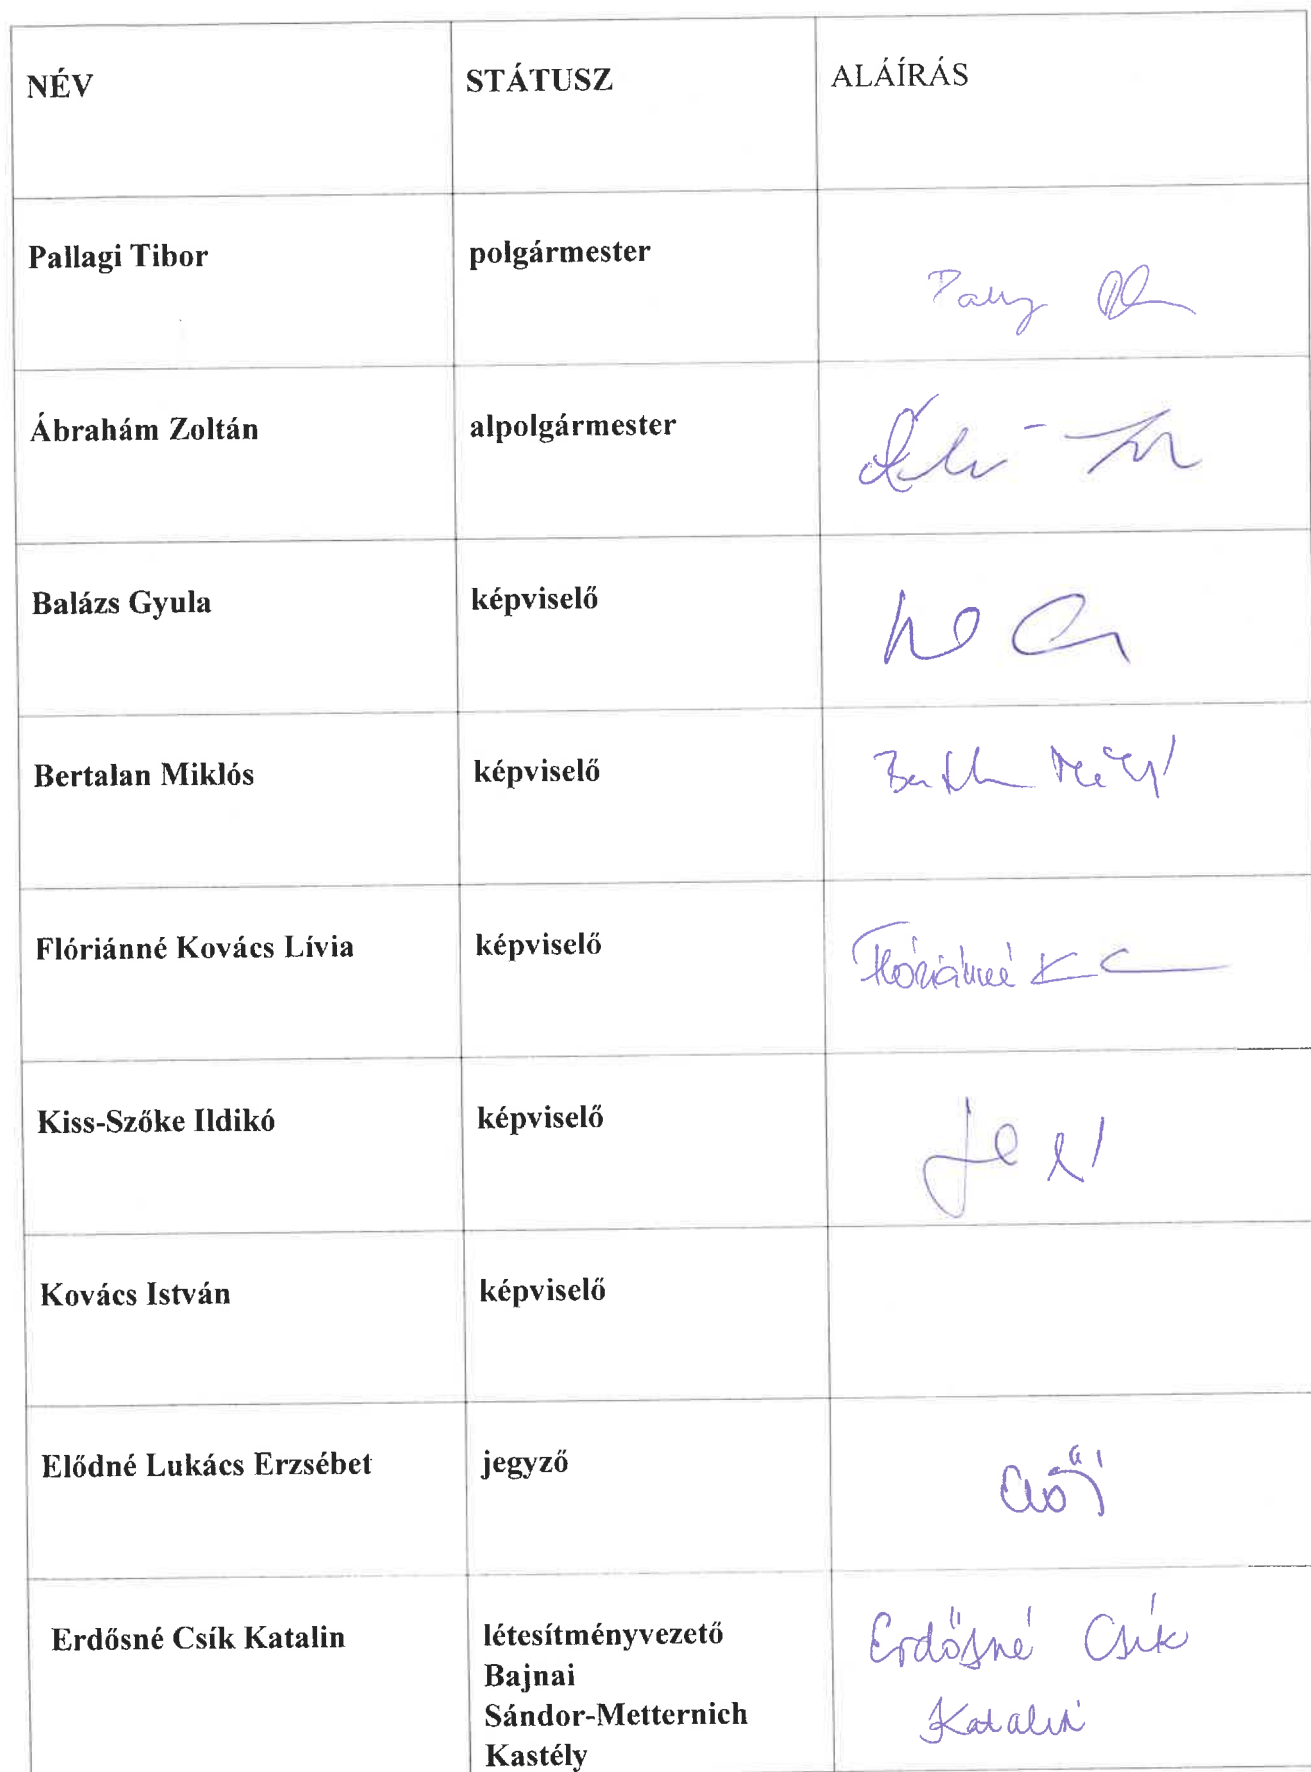 NÉV STÁTUSZ ALÁÍRÁS
Pallagi Tibor polgármester
Ábrahám Zoltán alpolgármester
Balázs Gyula képviselő
Bertalan Miklós képviselő
Flóriánné Kovács Lívia képviselő Flóriánné K
Kiss-Szőke Ildikó képviselő
Kovács István képviselő
Elődné Lukács Erzsébet jegyző
Erdősné Csík Katalin létesítményvezető Erdősné Csík
Bajnai
Sándor-Metternich Katalin
Kastély